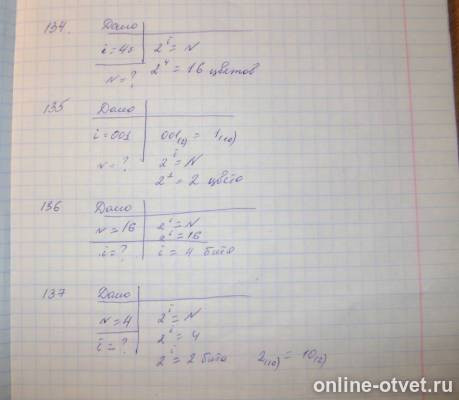 134. Дано
i = 4б 2^i = N
N = ? 2^4 = 16 цветов
135 Дано
i = 001 001(2) = 1(10)
N = ? 2^i = N
2^1 = 2 цвета
136 Дано
N = 16 2^i = N
2^i = 16
i = ? i = 4 бита
137 Дано
N = 4 2^i = N
i = ? 2^i = 4
2^i = 2 бита 2(10) = 10(2)
online-otvet.ru